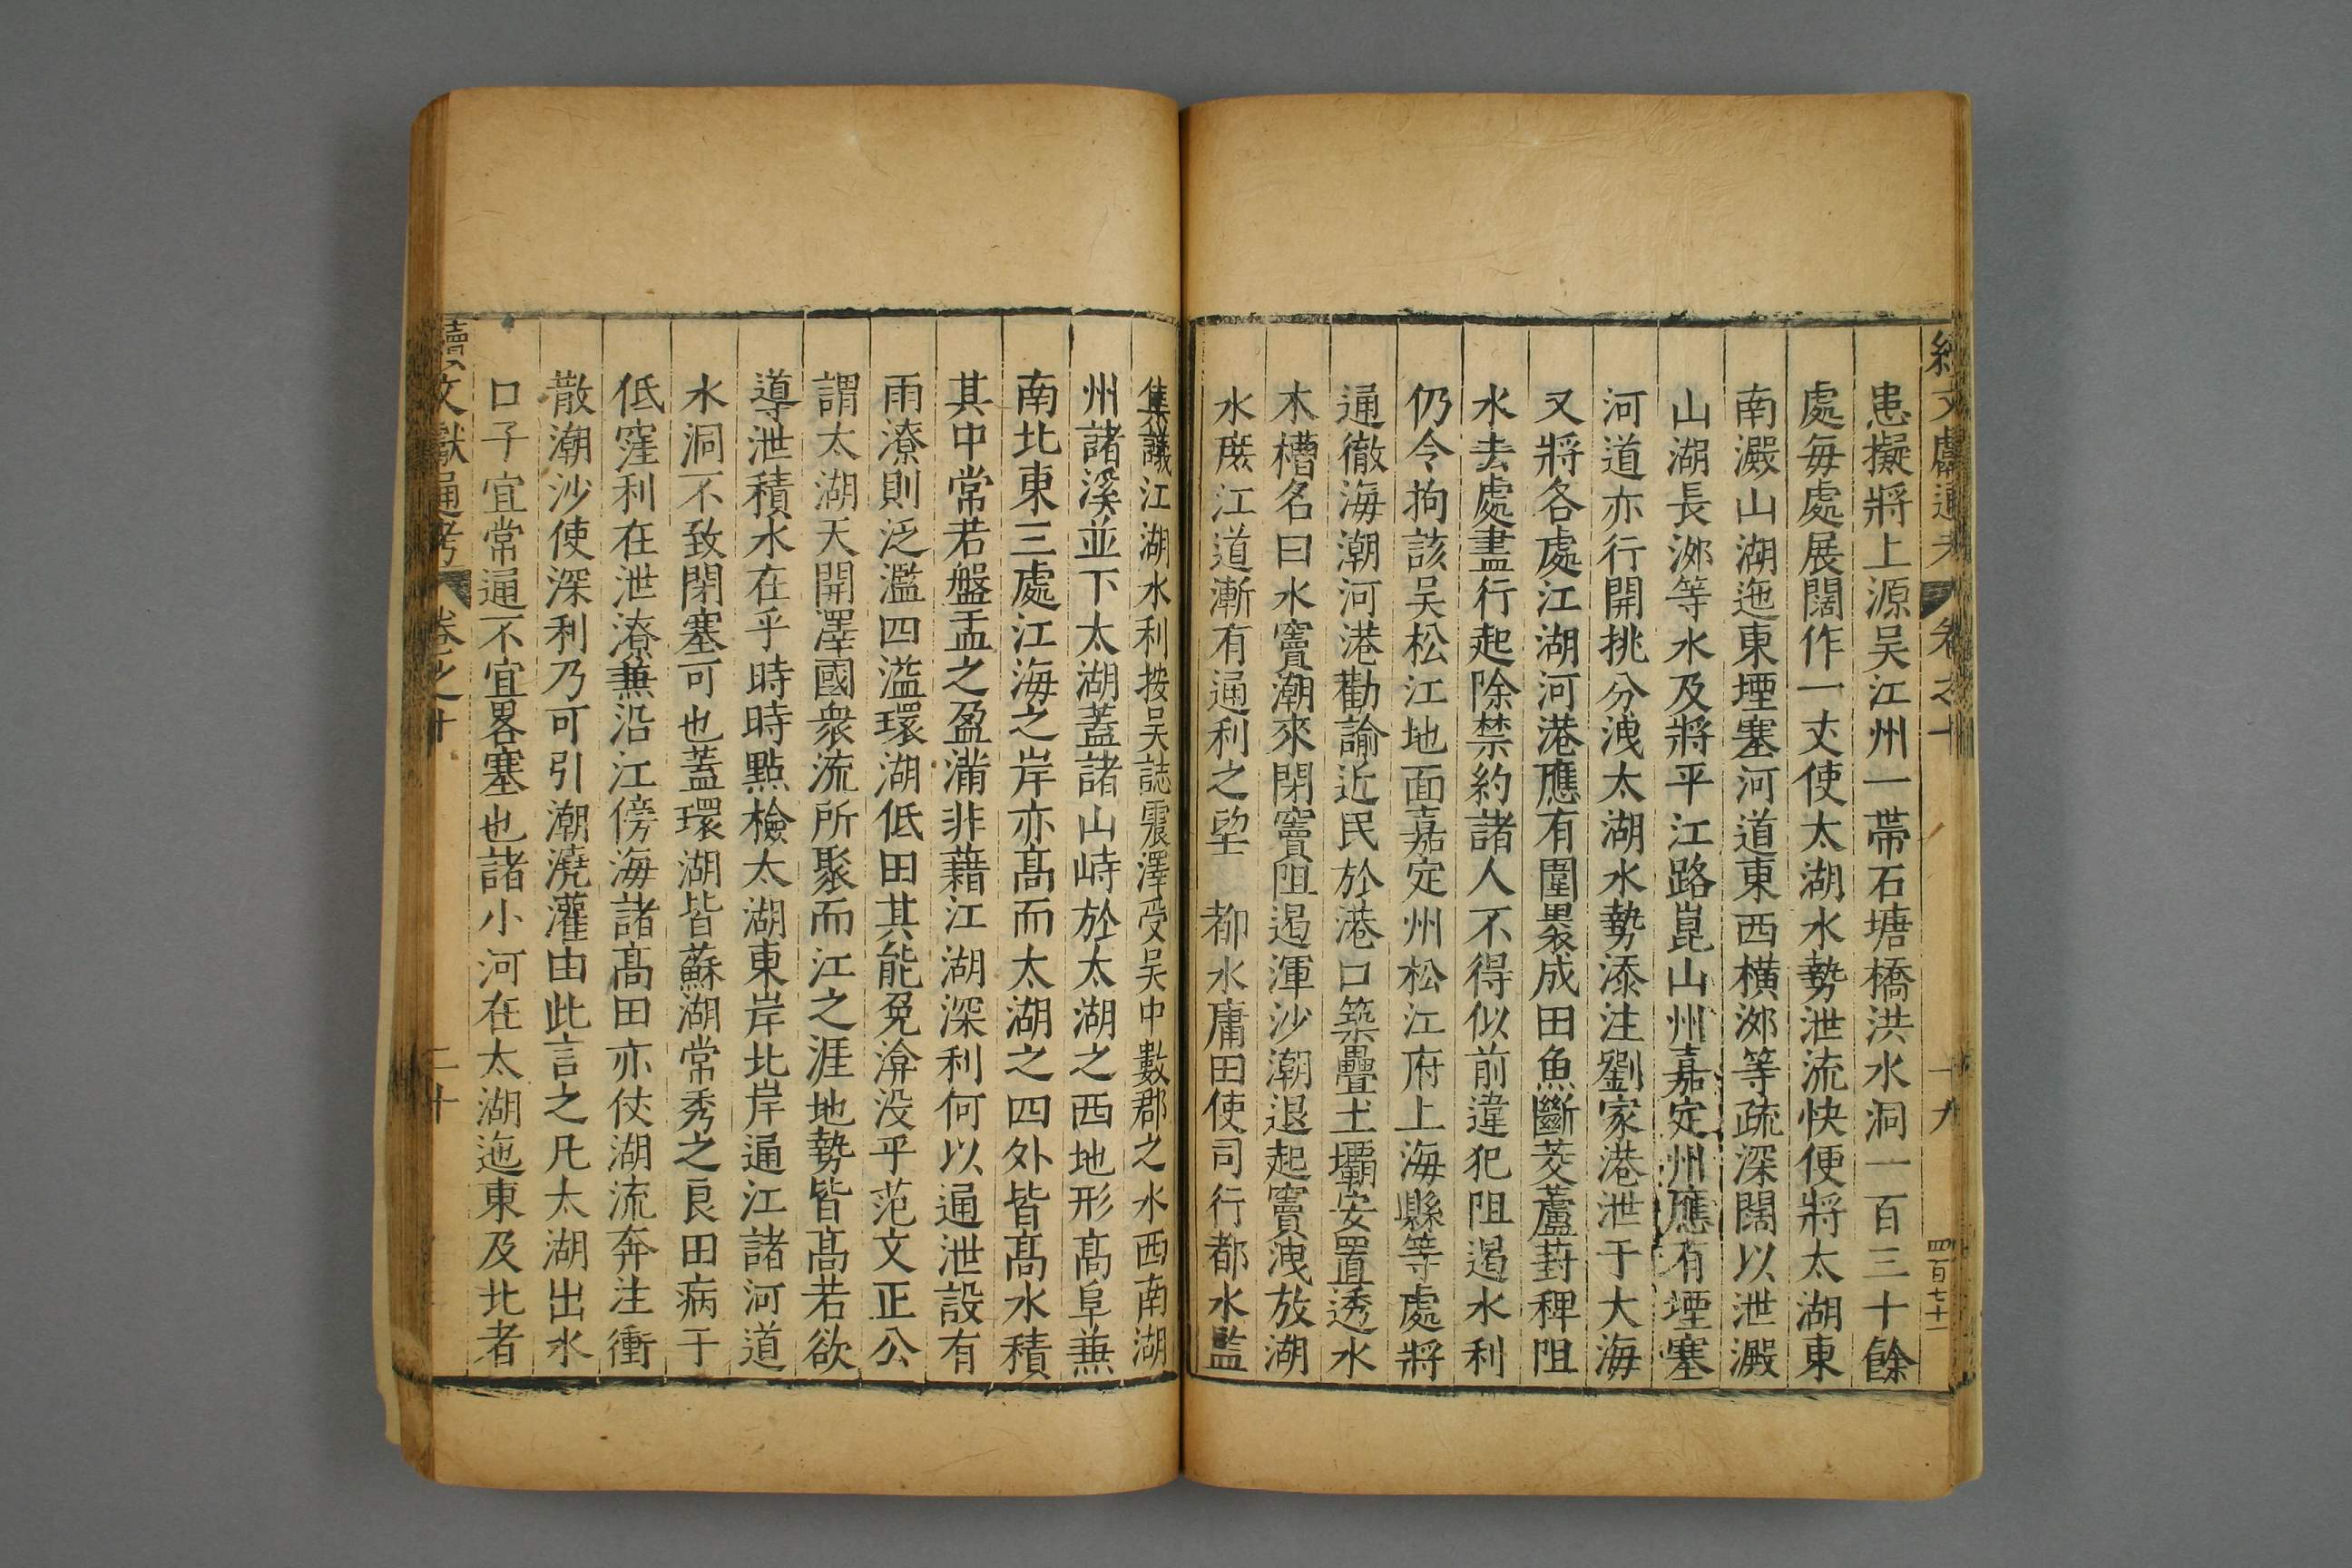 續文獻通考 卷之十 十九 四百七十一
患擬將上源吴江州一帶石塘橋洪水洞一百三十餘
處每處展闊作一丈使太湖水勢泄流快便將太湖東
南澱山湖迤東堙塞河道東西橫泖等疏深闊以泄澱
山湖長泖等水及將平江路崑山州嘉定州應有堙塞
河道亦行開挑分洩太湖水勢添注劉家港泄于大海
又將各處江湖河港應有圍褁成田魚斷茭蘆葑稗阻
水去處盡行起除禁約諸人不得似前違犯阻遏水利
仍令拘該吴松江地面嘉定州松江府上海縣等處將
通徹海潮河港勸諭近民於港口築疊土壩安置透水
木槽名曰水竇潮來閉竇阻遏渾沙潮退起竇洩放湖
水庶江道漸有通利之望 都水庸田使司行都水監
集議江湖水利按吴誌震澤受吴中數郡之水西南湖
州諸溪並下太湖蓋諸山峙於太湖之西地形髙阜兼
南北東三處江海之岸亦髙而太湖之四外皆髙水積
其中常若盤盂之盈滿非藉江湖深利何以通泄設有
雨潦則泛濫四溢環湖低田其能免渰没乎范文正公
謂太湖天開澤國衆流所聚而江之涯地勢皆髙若欲
導泄積水在乎時時點檢太湖東岸北岸通江諸河道
水洞不致閉塞可也蓋環湖皆蘇湖常秀之良田病于
低窪利在泄潦兼沿江傍海諸髙田亦仗湖流奔注衝
散潮沙使深利乃可引潮澆灌由此言之凡太湖出水
口子宜常通不宜畧塞也諸小河在太湖迤東及北者
續文獻通考 卷之十 二十